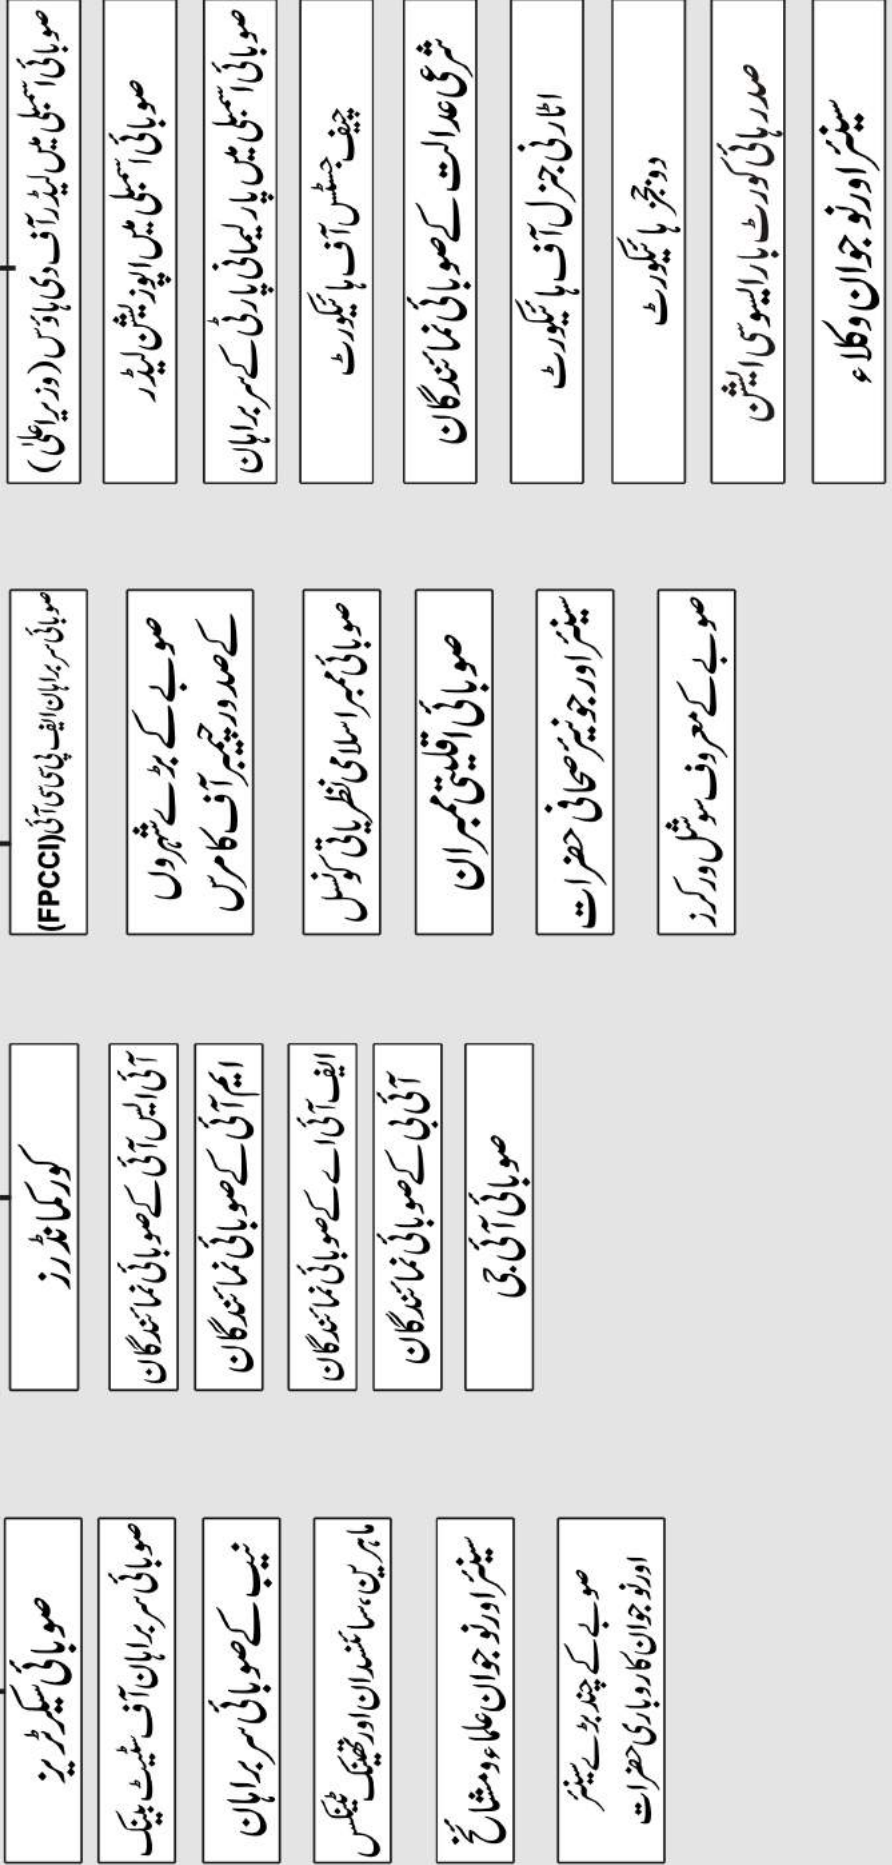 صوبائی اسمبلی میں لیڈر آف دی ہاؤس (وزیر اعلیٰ)
صوبائی اسمبلی میں اپوزیشن لیڈر
صوبائی اسمبلی میں پارلیمانی پارٹی کے سربراہان
چیف جسٹس آف ہائیکورٹ
شرعی عدالت کے صوبائی نمائندگان
اٹارنی جنرل آف ہائیکورٹ
دو ججز ہائیکورٹ
صدر ہائی کورٹ بار ایسوسی ایشن
سینئر اور نوجوان وکلاء
صوبائی سربراہان ایف پی سی سی آئی (FPCCI)
صوبے کے بڑے شہروں
کے صدور چیمبر آف کامرس
صوبائی ممبر اسلامی نظریاتی کونسل
صوبائی اقلیتی ممبران
سینئر اور جونیئر صحافی حضرات
صوبے کے معروف سوشل ورکرز
کور کمانڈرز
آئی ایس آئی کے صوبائی نمائندگان
ایم آئی کے صوبائی نمائندگان
ایف آئی اے کے صوبائی نمائندگان
آئی بی کے صوبائی نمائندگان
صوبائی آئی جی
صوبائی سیکرٹریز
صوبائی سربراہان آف سٹیٹ بینک
نیب کے صوبائی سربراہان
ماہرین، سائنسدان اور تھینک ٹینکس
سینئر اور نوجوان علماء و مشائخ
صوبے کے چند بڑے سینئر
اور نوجوان کاروباری حضرات